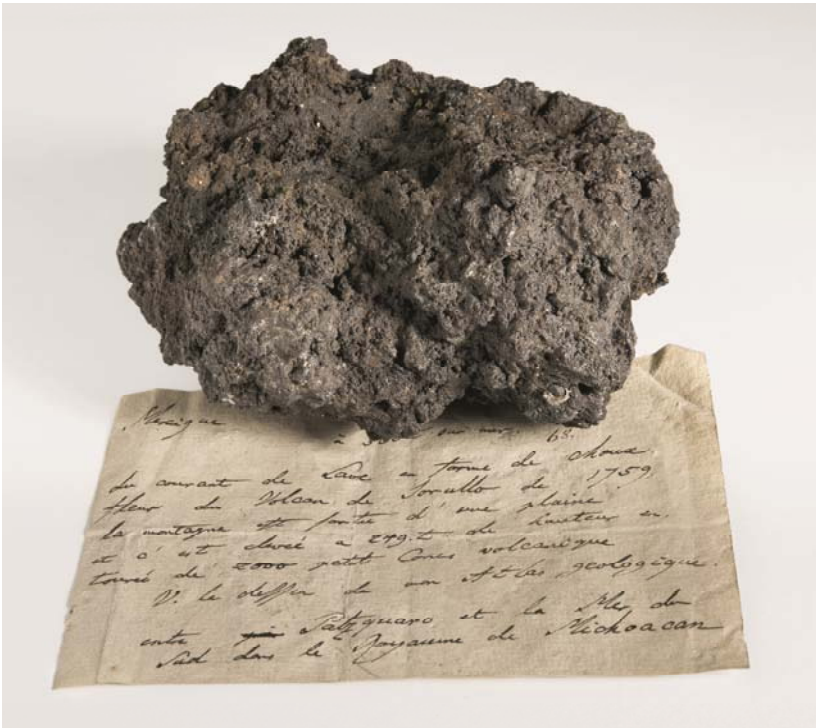 Mexique
à sur mer. 68.
du courant de Lave en forme de choux
fleur du Volcan de Jorullo de 1759,
la montagne est sortie d'une plaine
et c'est elevée a 279.t de hauteur en
tourée de 2000 petit Cones volcanique
V. le dessin de mon Atlas geologique.
entre Patzquaro et la Mer du
Sud dans le Royaume de Michoacan